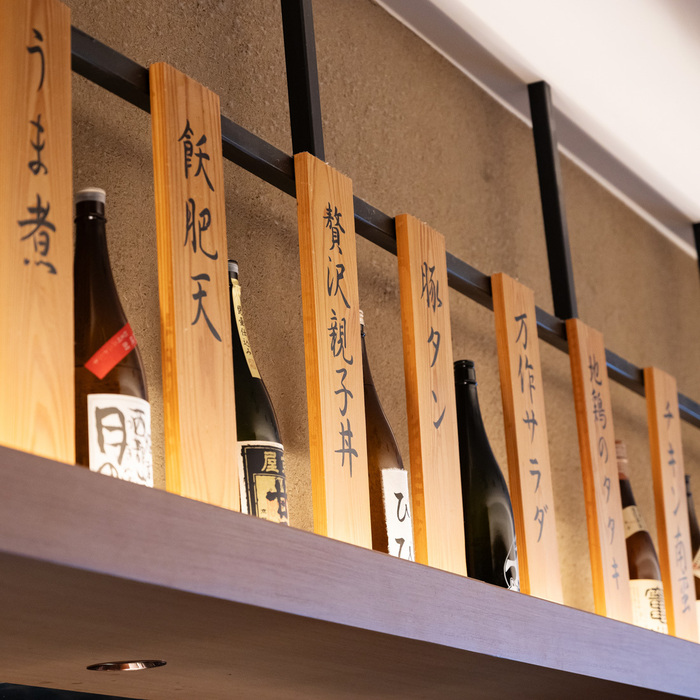 うま煮
飫肥天
贅沢親子丼
豚タン
万作サラダ
地鶏のタタキ
チキン南蛮
月の
屋
甘
ひひ